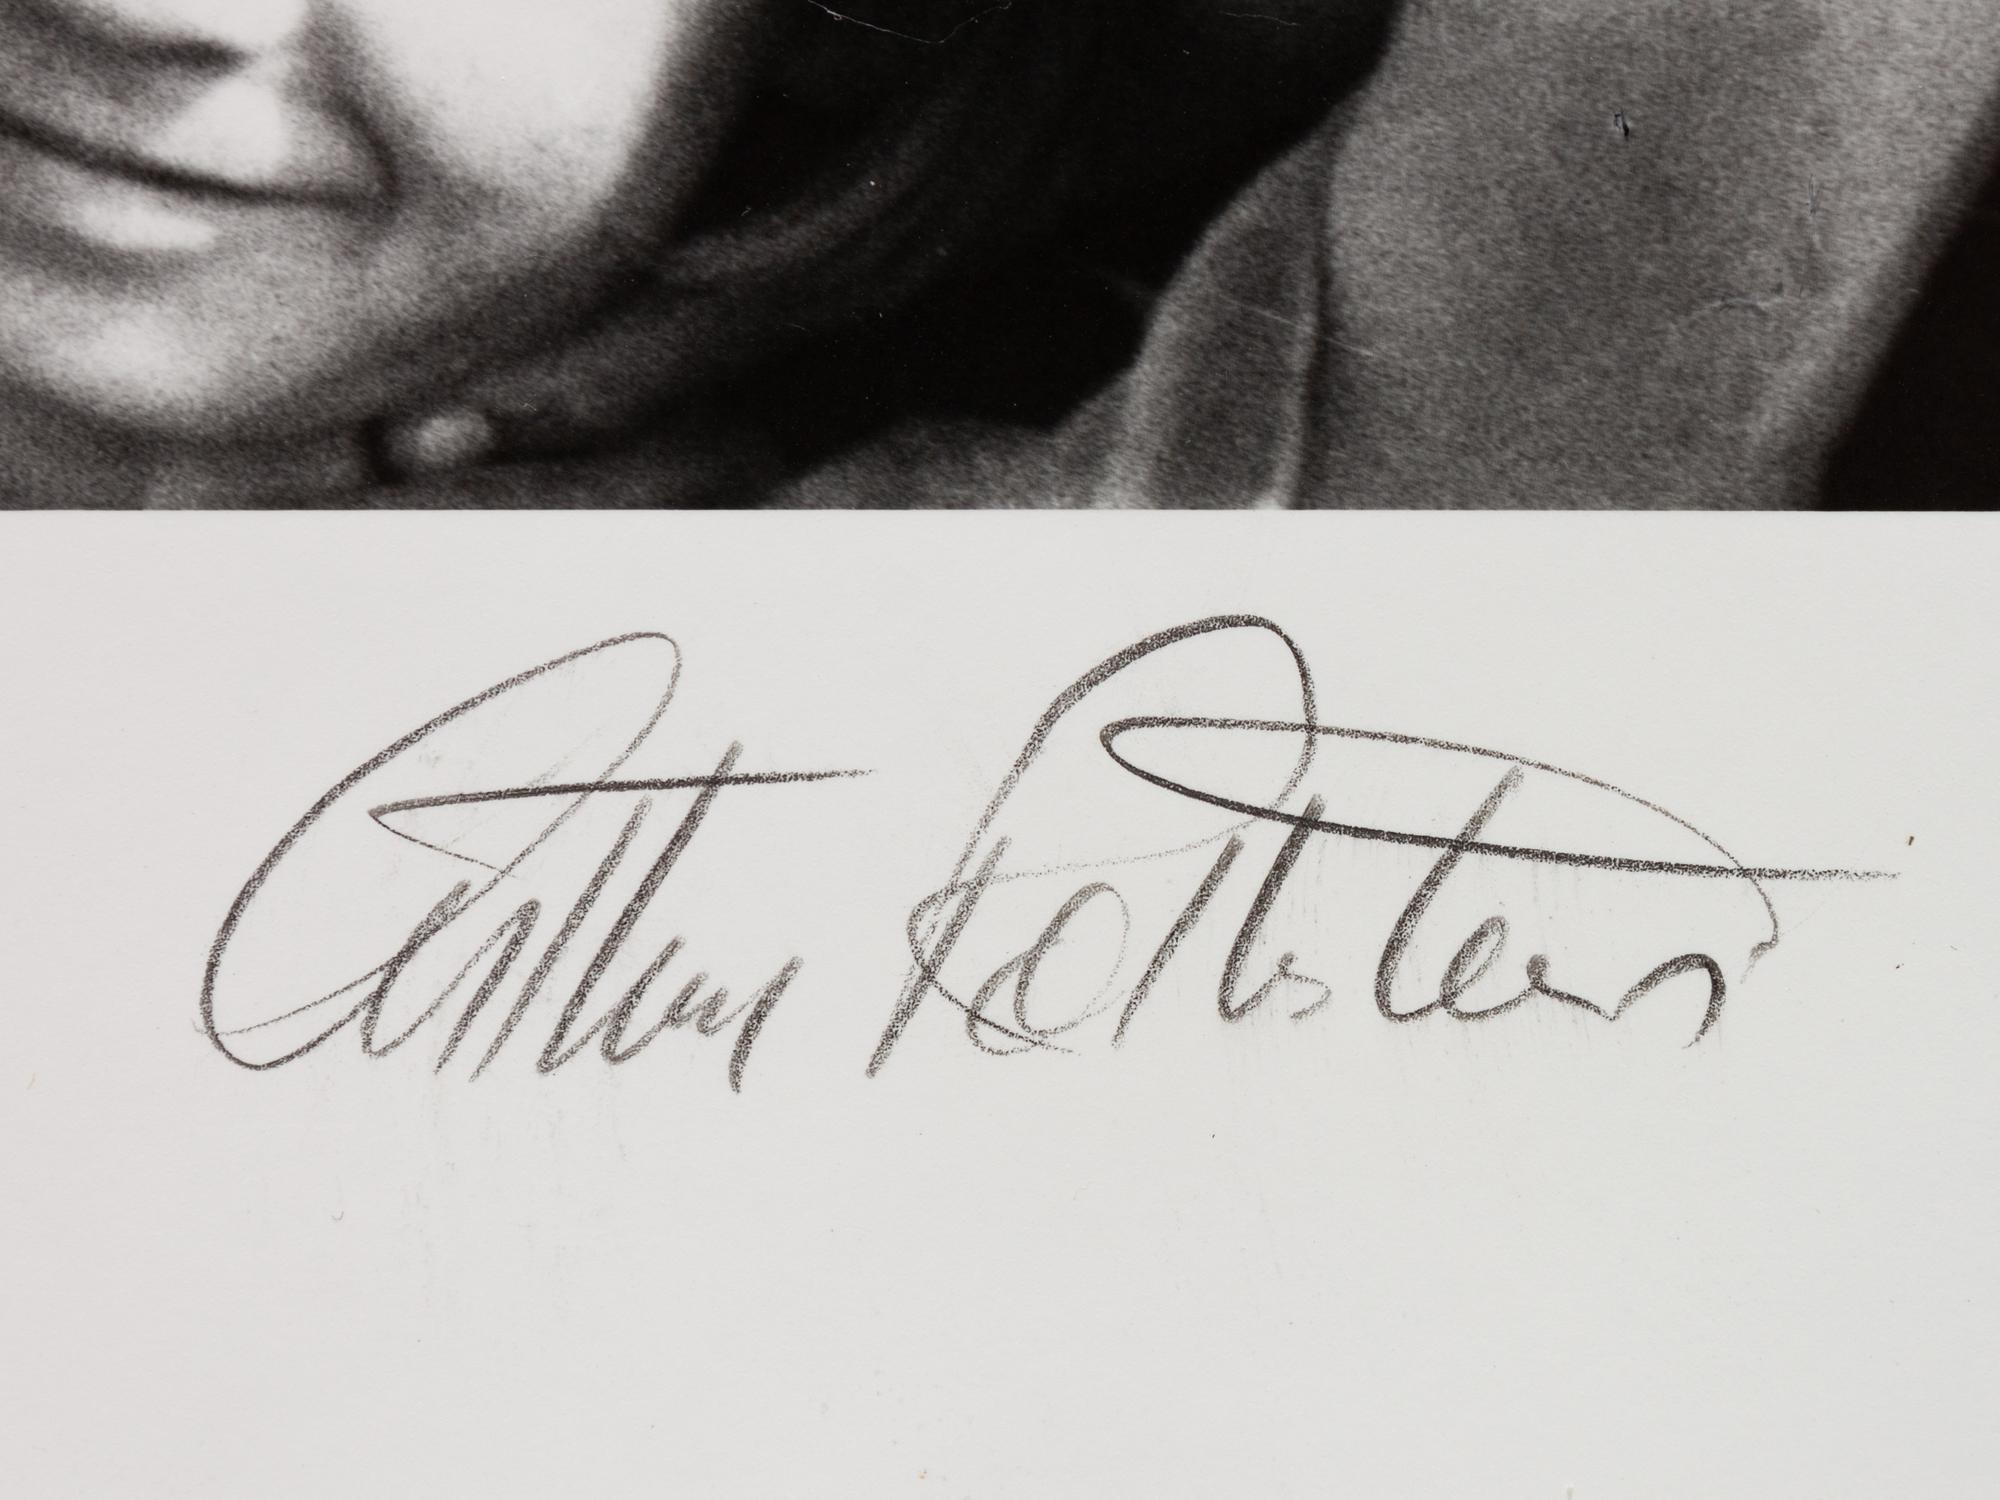 Arthur Rothstein